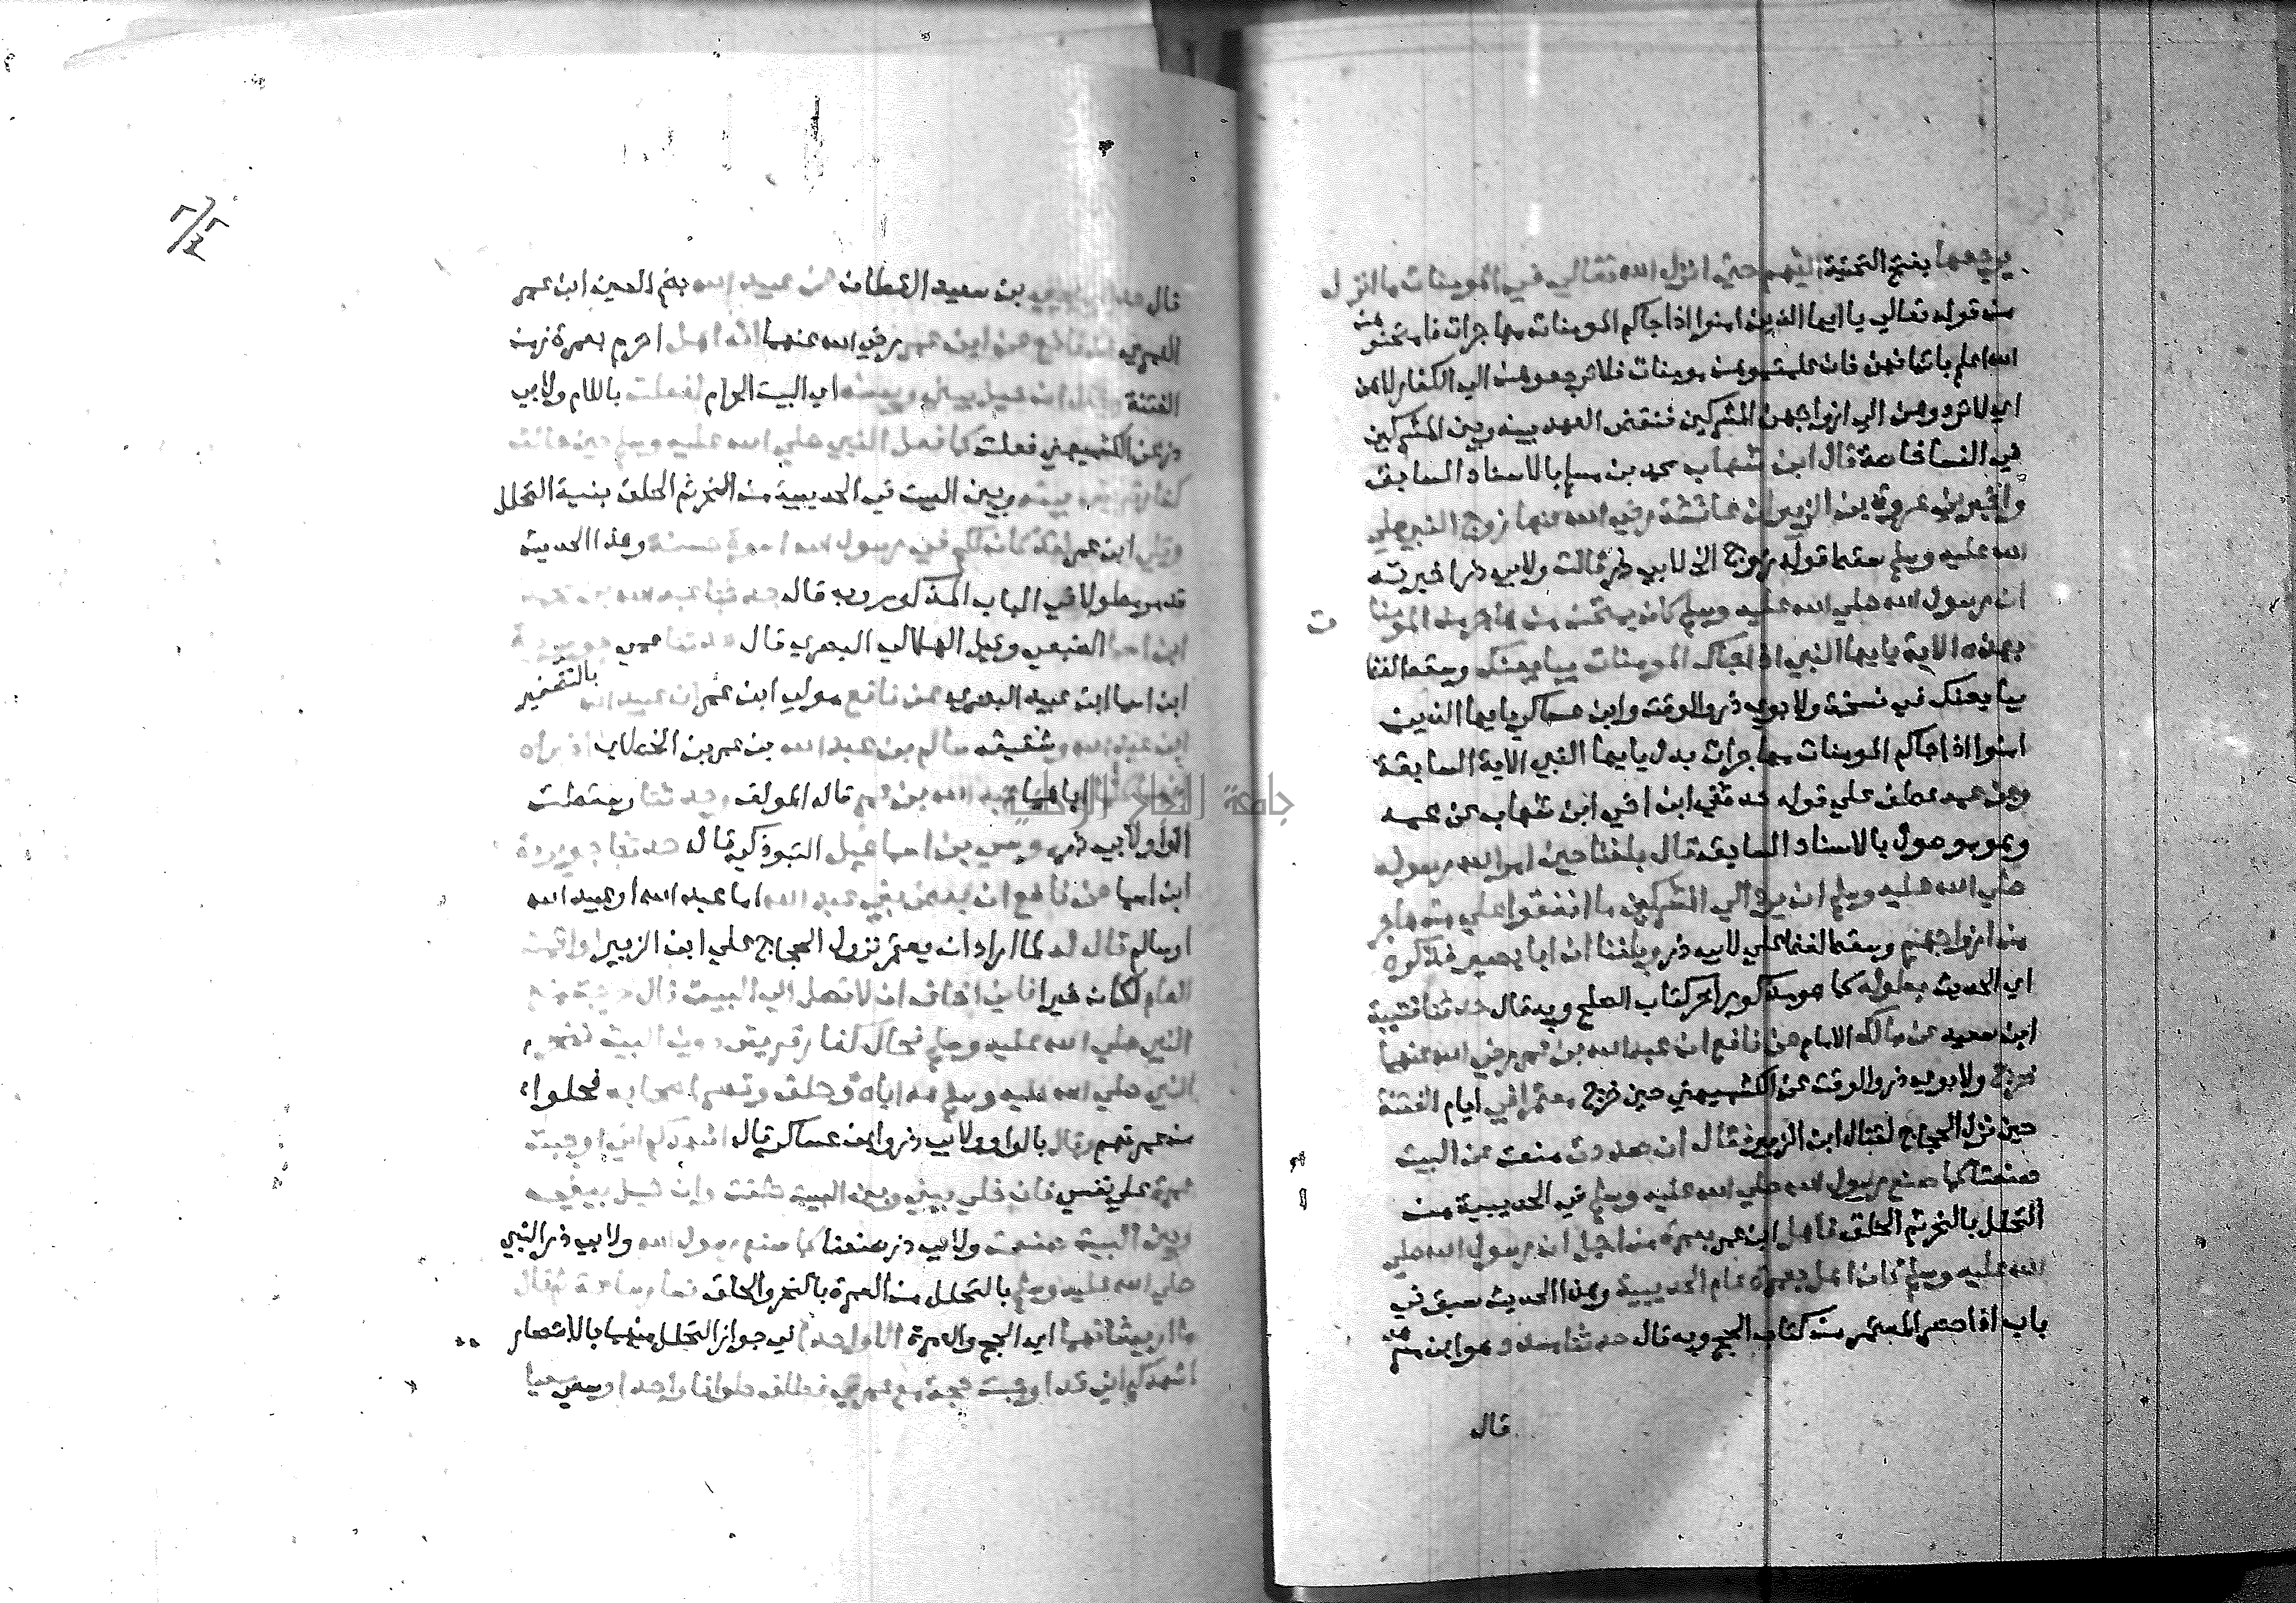 يرجعها بفتح التحتية اليهم حتى انزل الله تعالى في المومنات ما انزل
من قوله تعالى يا ايها الذين امنوا اذا جاكم المومنات مهاجرات فامتحنوهن
الله اعلم بايمانهن فان علمتموهن مومنات فلا ترجعوهن الى الكفار لاهن
اي لا تردوهن الى ازواجهن المشركين فنقض العهد بينه وبين المشركين
في النسا خاصة قال ابن شهاب محمد بن مسلم بالاسناد السابق
واخبرني عروة بن الزبير ان عائشة رضي الله عنها زوج النبي صلى
الله عليه وسلم سقط قوله زوج الى لابي ذر قالت ولابي ذر اخبرته
ان رسول الله صلى الله عليه وسلم كان يمتحن من هاجر من المومنا ت
بهذه الاية يايها النبي اذا جاك المومنات يبايعنك وسقط لفظ
يبايعنك في نسخة ولابوي ذر والوقت وابن عساكر يايها الذين
امنوا اذا جاكم المومنات مهاجرات بدل يايها النبي الاية السابقة
وعن عمه عطف على قوله حدثني ابن اخي ابن شهاب عن عمه
وهو موصول بالاسناد السابق قال بلغنا حين امر الله رسوله
صلى الله عليه وسلم ان يرد الى المشركين ما انفقوا على من هاجر
من ازواجهم وسقط لفظ على لابي ذر وبلغنا ان ابا بصير فذكره
اي الحديث بطوله كما هو مذكور اخر كتاب الصلح وبه قال حدثنا قتيبة
ابن سعيد عن مالك الامام عن نافع ان عبد الله بن عمر رضي الله عنهما
خرج ولابوي ذر والوقت عن الكشميهني حين خرج معتمرا في ايام الفتنة
حين نزل الحجاج لقتال ابن الزبير فقال ان صددت منعت عن البيت
صنعنا كما صنع رسول الله صلى الله عليه وسلم في الحديبية من
التحلل بالنحر ثم الحلق فاهل ابن عمر بعمرة من اجل ان رسول الله صلى
الله عليه وسلم كان اهل بعمرة عام الحديبية وهذا الحديث سبق في
باب اذا احصر المعتمر من كتاب الحج وبه قال حدثنا مسدد هو ابن مسرهد
قال
قال حدثنا يحيى بن سعيد القطان عن عبيد الله بضم العين ابن عمر
العمري عن نافع عن ابن عمر رضي الله عنهما انه اهل احرم بعمرة زمن
الفتنة وقال ان حيل بيني وبينه اي البيت الحرام لفعلت باللام ولابي
ذر عن الكشميهني فعلت كما فعل النبي صلى الله عليه وسلم حين حالت
كفار قريش بينه وبين البيت في الحديبية من النحر ثم الحلق بنية التحلل
وتلى ابن عمر لقد كان لكم في رسول الله اسوة حسنة وهذا الحديث
قد مر مطولا في الباب المذكور وبه قال حدثنا عبد الله بن محمد
ابن اسما الضبعي وقيل الهلالي البصري قال حدثنا عمي جويرية
ابن اسما ابن عبيد البصري عن نافع مولى ابن عمر ان عبيد الله بالتصغير
ابن عبد الله وشقيقه سالم بن عبد الله بن عمر بن الخطاب اخبراه
انهما كلما اباهما عبد الله بن عمر قال المولف وحدثنا وسقطت
الواو لابي ذر موسى بن اسماعيل التبوذكي قال حدثنا جويرية
ابن اسما عن نافع ان بعض بني عبد الله اما عبد الله او عبيد الله
او سالم قال له لما اراد ان يعتمر نزول الحجاج على ابن الزبير لو اقمت
العام لكان خيرا فاني اخاف ان لا تصل الى البيت قال خرجنا مع
النبي صلى الله عليه وسلم فحال كفار قريش دون البيت فنحر
النبي صلى الله عليه وسلم هداياه وحلق وقصر اصحابه فحلوا
من عمرتهم وقال بالواو ولابي ذر وابن عساكر قال اشهدكم اني اوجبت
عمرة على نفسي فان خلي بيني وبين البيت طفت وان حيل بيني
وبين البيت صنعت ولابي ذر صنعنا كما صنع رسول الله ولابي ذر النبي
صلى الله عليه وسلم بالتحلل من العمرة بالنحر والحلق فسار ساعة ثم قال
ما ارى شانهما اي الحج والعمرة الا واحدا في جواز التحلل منهما بالاحصار
اشهدكم اني قد اوجبت حجة مع عمرتي فطاف طوافا واحدا وسعى سعيا
جامعة النجاح الوطنية